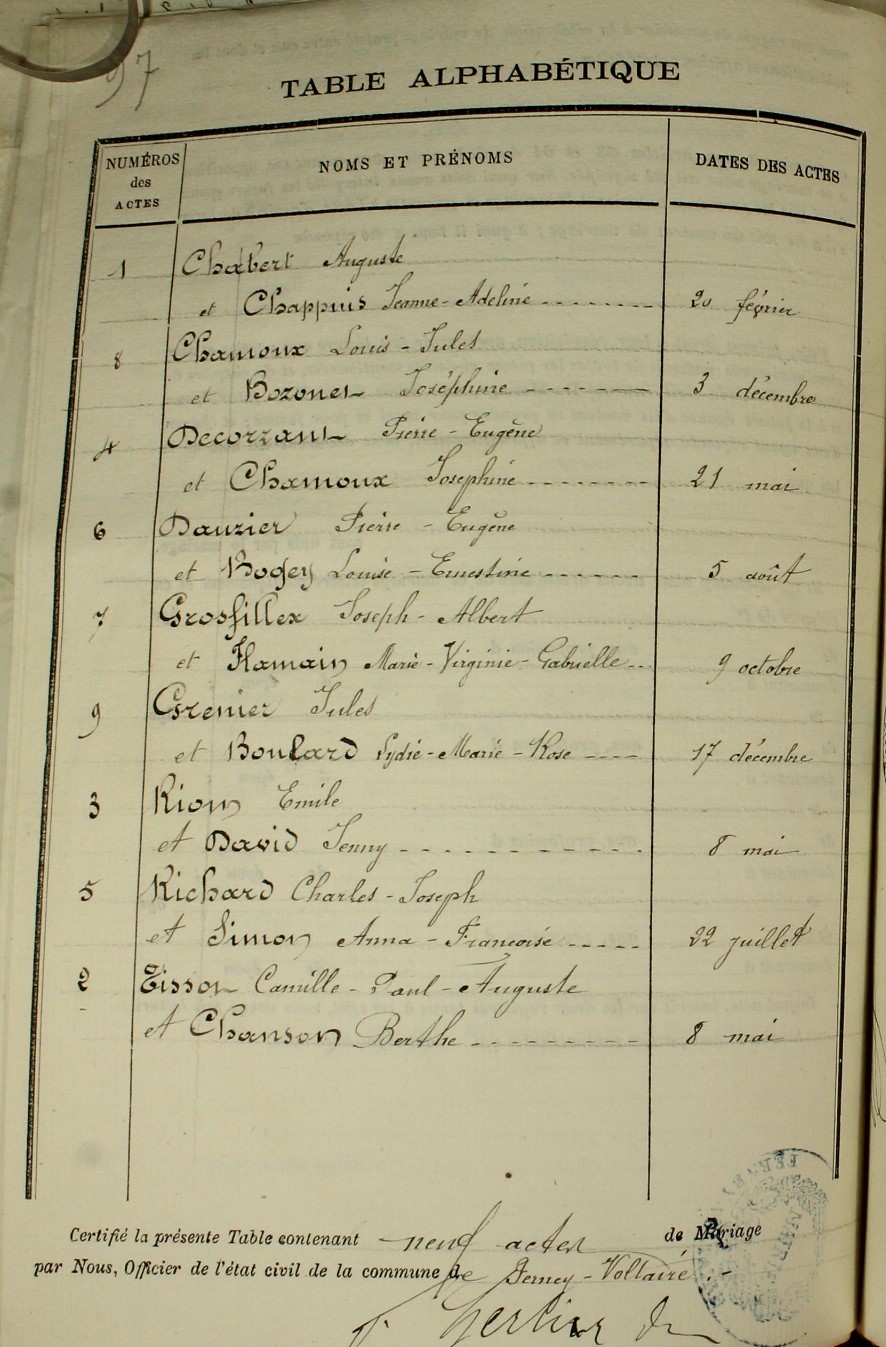 97
TABLE ALPHABÉTIQUE
NUMÉROS des ACTES NOMS ET PRÉNOMS DATES DES ACTES
1 Chabert Auguste
et Chappuis Jeanne-Adeline 20 février
8 Chamoux Louis-Jules
et Bozonet Joséphine 3 décembre
4 Decorzant Pierre-Eugène
et Chamoux Josephine 21 mai
6 Dauzier Pierre-Eugène
et Bogey Louise-Ernestine 5 août
7 Grosfillex Joseph-Albert
et Hamain Marie-Virginie-Gabrielle 9 octobre
9 Grenier Jules
et Boulard Lydie-Marie-Rose 17 décembre
3 Riom Emile
et David Jenny 8 mai
5 Richard Charles-Joseph
et Simon Anna-Françoise 22 juillet
2 Tisson Camille-Paul-Auguste
et Chanson Berthe 8 mai
Certifié la présente Table contenant neuf actes de Mariage
par Nous, Officier de l'état civil de la commune de Ferney-Voltaire.